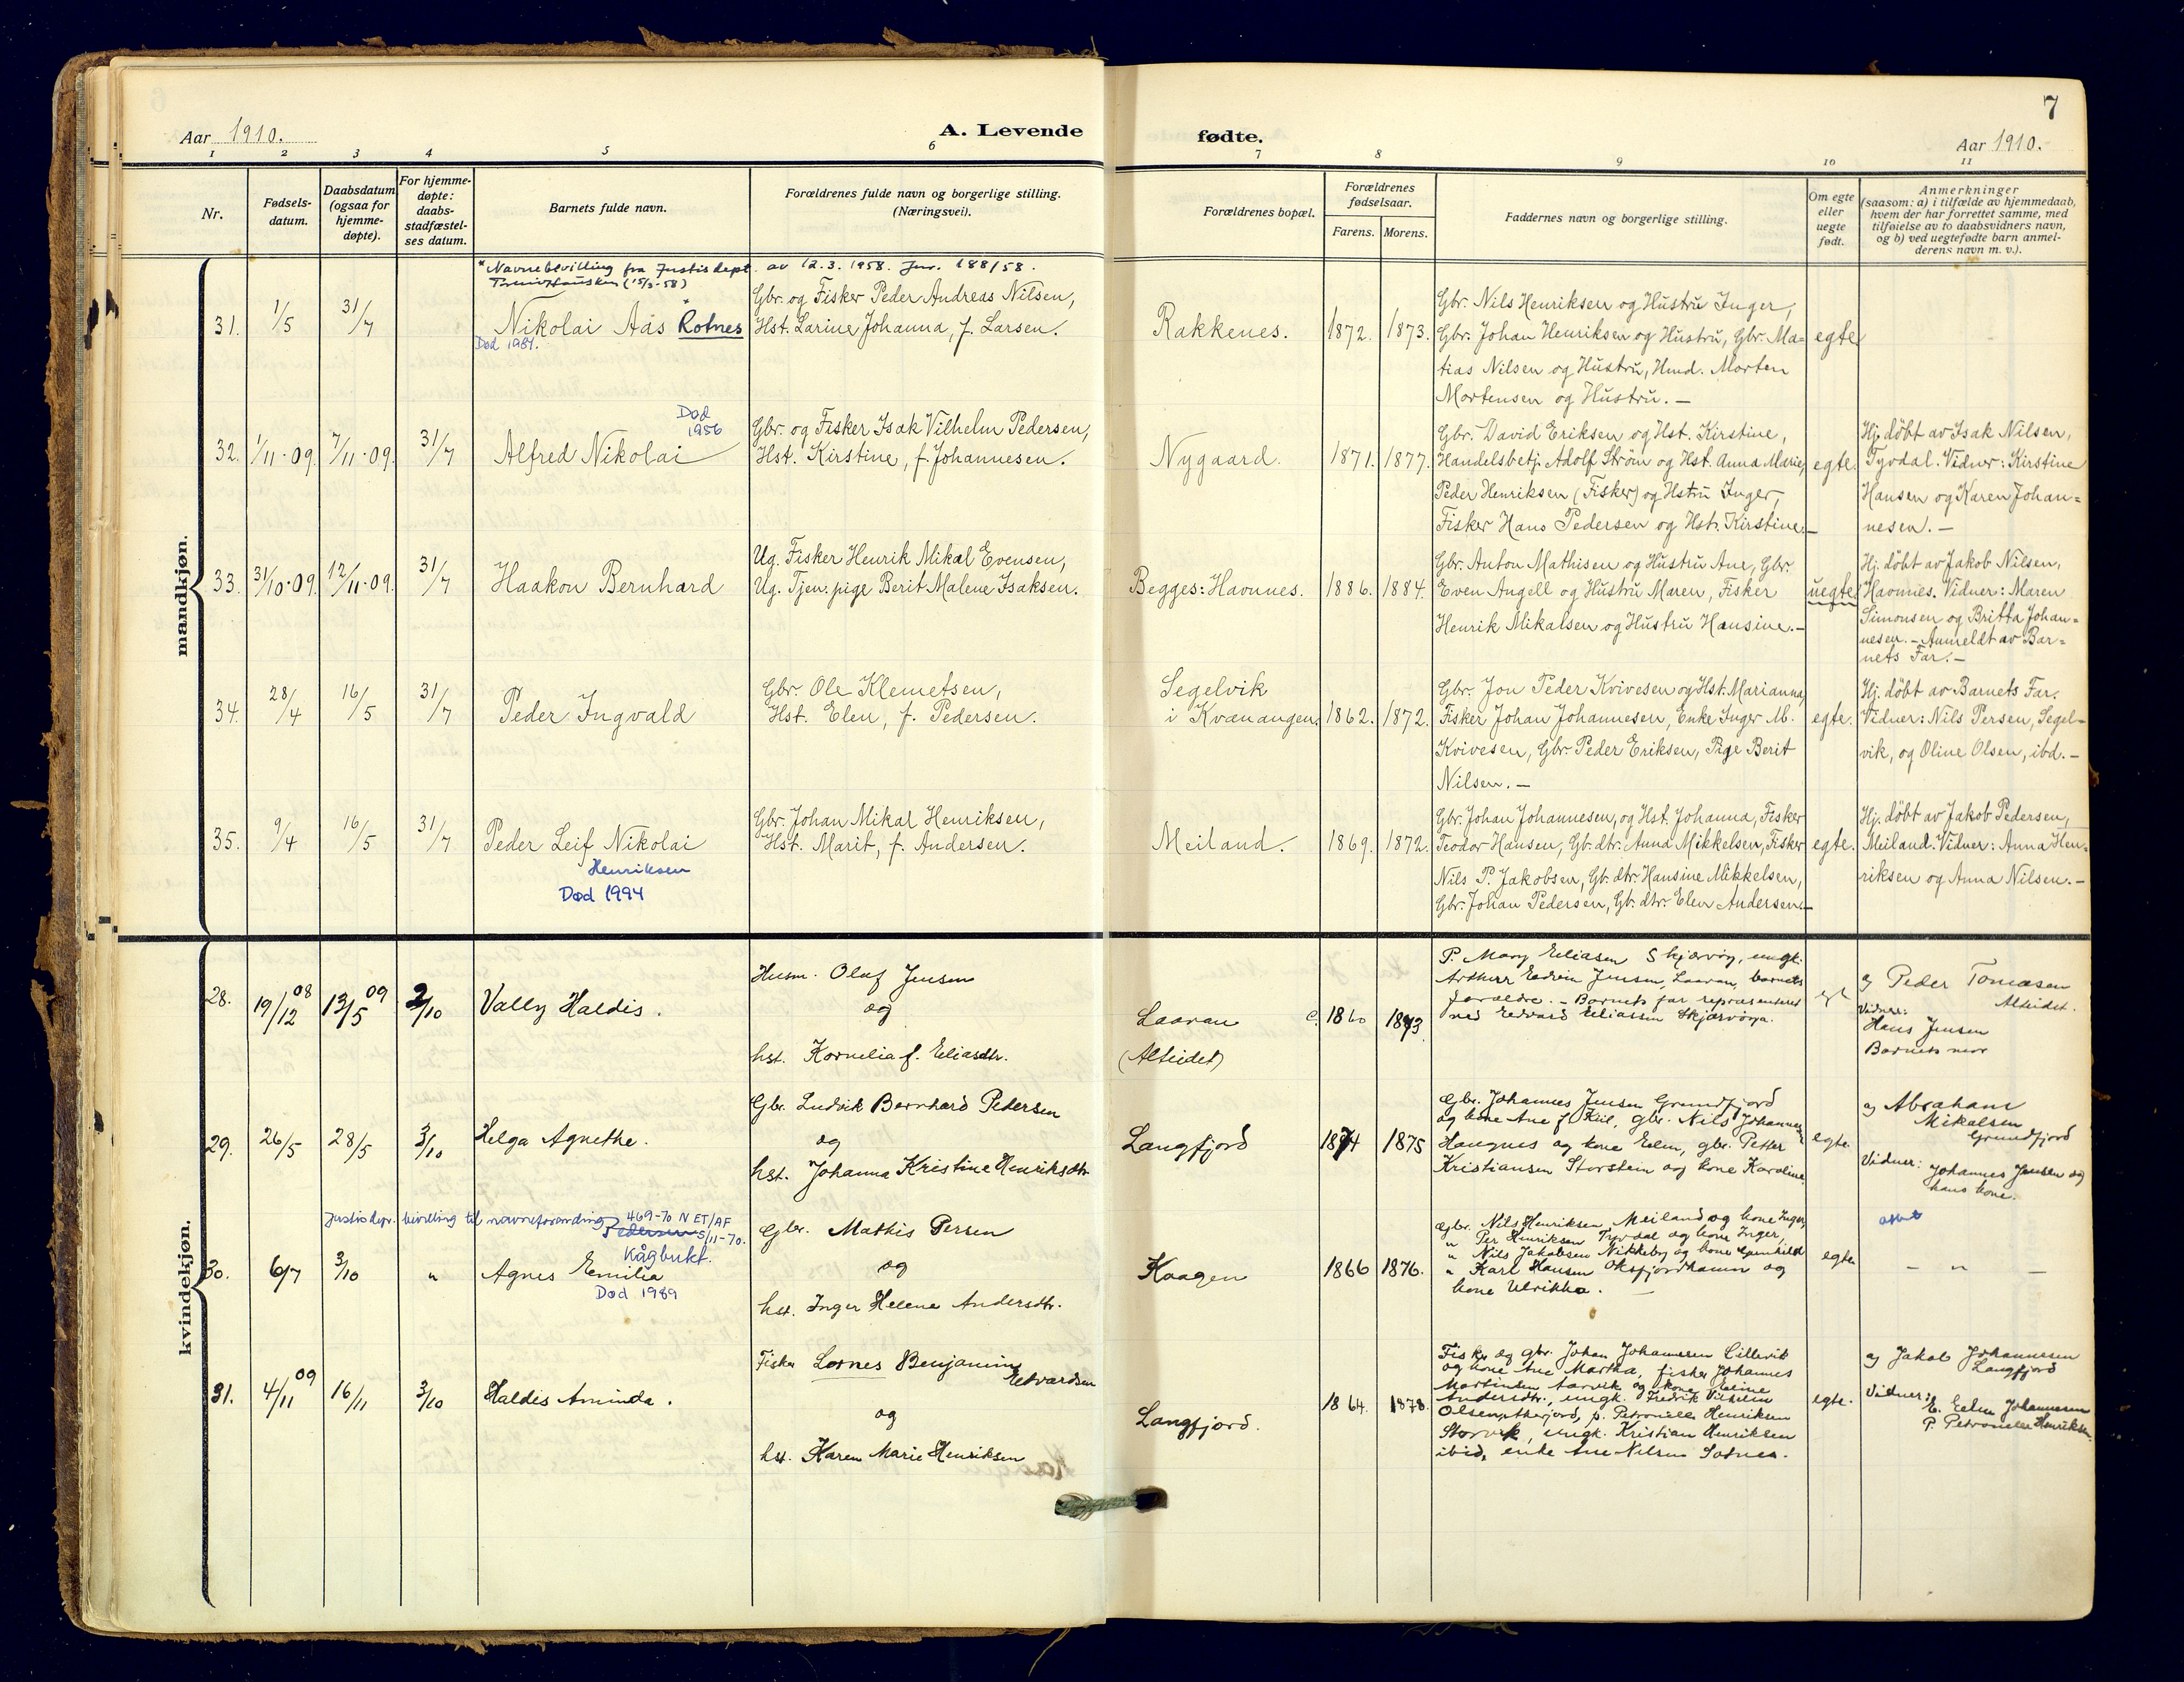 Aar 1910.
A. Levende
fødte.
7
Aar 1910.
1 2 3 4 5 6 7 8 9 10 11
Nr.
Fødsels-
datum.
Daabsdatum
(ogsaa for
hjemme-
døpte).
For hjemme-
døpte:
daabs-
stadfæstel-
ses datum.
Barnets fulde navn.
Forældrenes fulde navn og borgerlige stilling.
(Næringsvei).
Forældrenes bopæl.
Forældrenes
fødselsaar.
Farens. Morens.
Faddernes navn og borgerlige stilling.
Om egte
eller
uegte
født.
Anmerkninger
(saasom: a) i tilfælde av hjemmedaab,
hvem der har forrettet samme, med
tilføielse av to daabsvidners navn,
og b) ved uegtefødte barn anmel-
derens navn m. v.).
mandkjøn.
* Navnebevilling fra Justisdept. av 12.3.1958. Jnr. 188/58.
(15/3-58)
31. 1/5 31/7
Nikolai Aas * Rotnes
Død 1984.
Gbr. og Fisker Peder Andreas Nilsen,
Hst. Larine Johanna, f. Larsen.
Rakkenes. 1872. 1873.
Gbr. Nils Henriksen og Hustru Inger,
Gbr. Johan Henriksen og Hustru, Gbr. Ma=
tias Nilsen og Hustru, Hmd. Morten
Mortensen og Hustru. —
egte
32. 1/11-09. 7/11-09. 31/7
Alfred Nikolai
Død
1956
Gbr. og Fisker Isak Vilhelm Pedersen,
Hst. Kirstine, f. Johannesen.
Nygaard. 1871. 1877.
Gbr. David Eriksen og Hst. Kirstine,
Handelsbetj. Adolf Strøm og Hst. Anna Marie,
Peder Henriksen (Fisker) og Hstru Inger,
Fisker Hans Pedersen og Hst. Kirstine. —
egte.
Hj. döbt av Isak Nilsen,
Tyvdal. Vidner: Kirstine
Hansen og Karen Johan=
nesen. —
33. 31/10-09. 12/11-09. 31/7
Haakon Bernhard
Ug. Fisker Henrik Mikal Evensen,
Ug. Tjen. pige Berit Malene Isaksen.
Begges: Havnnes. 1886. 1884.
Gbr. Anton Mathisen og Hustru Ane, Gbr.
Even Angell og Hustru Maren, Fisker
Henrik Mikalsen og Hustru Hansine. —
uegte.
Hj. döbt av Jakob Nilsen,
Havnnes. Vidner: Maren
Simonsen og Britta Johan=
nesen. — Anmeldt av Bar=
nets Far. —
34. 28/4 16/5 31/7
Peder Ingvald
Gbr. Ole Klemetsen,
Hst. Elen, f. Pedersen.
Segelvik
i Kvænangen. 1862. 1872.
Gbr. Jon Peder Kvivesen og Hst. Marianna,
Fisker Johan Johannesen, Enke Inger M.
Kvivesen, Gbr. Peder Eriksen, Pige Berit
Nilsen. —
egte.
Hj. döbt av Barnets Far.
Vidner: Nils Persen, Segel-
vik, og Oline Olsen, ibd. —
35. 9/4 16/5 31/7
Peder Leif Nikolai
Henriksen
Død 1994
Gbr. Johan Mikal Henriksen,
Hst. Marit, f. Andersen.
Meiland. 1869. 1872.
Gbr. Johan Johannesen, og Hst. Johanna, Fisker
Teodor Hansen, Gb. dtr. Anna Mikkelsen, Fisker
Nils P. Jakobsen, Gb. dtr. Hansine Mikkelsen,
Gbr. Johan Pedersen, Gb. dtr. Elen Andersen. —
egte.
Hj. döbt av Jakob Pedersen,
Meiland. Vidner: Anna Hen=
riksen og Anna Nilsen. —
kvindekjøn.
28. 19/12 08 13/5 09 2/10
Vally Haldis.
Husm. Olaf Jensen
og
hst. Kornelia f. Eliasdtr.
Laavan
(Alteidet)
1860 1873.
P. Mary Eliasen Skjærvøy, ungk.
Arthur Edvin Jensen, Laavan, barnets
forældre. — Barnets far repræsenteret
ved Edvard Eliassen Skjærvøya.
egt
af Peder Tomasen
Alteidet.
Vidner:
Hans Jensen
Barnets mor
29. 26/5 28/5 3/10
Helga Agnethe.
Gbr. Ludvik Bernhard Pedersen
og
hst. Johanna Kristine Henriksdtr.
Langfjord 1874 1875
Gbr. Johannes Jensen Grundfjord
og kone Ane f. Kiil, gbr. Nils Johannesen
Haugnes og kone Elen, gbr. Petter
Kristiansen Storstein og kone Karoline.
egte.
af Abraham
Mikalsen
Grundfjord
Vidner: Johannes Jensen og
hans kone.
Justisdepr. bevilling til navneforandring 469-70 N ET/AF
Pedersen 5/11-70.
Kågbukt.
30. 6/7 3/10 "
Agnes Emilia
Død 1989
Gbr. Mathis Persen
og
hst. Inger Helene Andersdtr.
Kaagen 1866 1876.
Gbr. Nils Henriksen, Meiland og kone Inger,
" Per Henriksen Tyvdal og kone Inger,
" Nils Jakobsen Nikkeby og kone Gunhild
" Karl Hansen Oksfjordhamn og
kone Ulrikka. —
egte.
— " —
31. 4/11 09 16/11 3/10
Haldis Aminda.
Fisker Lornes Benjamin
Edvardsen
og
hst. Karen Marie Henriksen
Langfjord. 1864. 1878.
Fisker og gbr. Johan Johannesen Lillevik
og kone Ane Martha, fisker Johannes
Martinsen Aarvik og kone Eline
Andersdtr., ungk. Fredrik Vilhelm
Olsen, p. Petronelle Henriksen
Storvik, ungk. Kristian Henriksen
ibid, enke Ane Nilsen Sotnes.
egte.
af Jakob Johannessen
Langfjord
Vidner:
E. Elen Johannesen
P. Petronelle Henriksen.